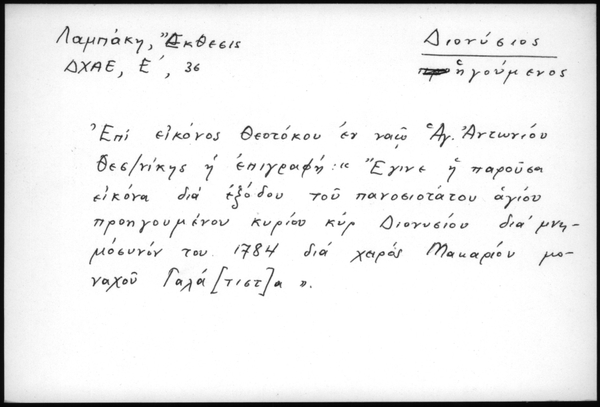 Λαμπάκη, "Εκθεσις
ΔΧΑΕ, Ε', 36
Διονύσιος
ἡγούμενος
Ἐπί εἰκόνος Θεοτόκου ἐν ναῷ Ἁγ. Ἀντωνίου
Θεσ/νίκης ἡ ἐπιγραφή: « Ἔγινε ἡ παροῦσα
εἰκόνα διά ἐξόδου τοῦ πανοσιοτάτου ἁγίου
προηγουμένου κυρίου κύρ Διονυσίου διά μνη-
μόσυνόν του 1784 διά χειρός Μακαρίου μο-
ναχοῦ Γαλά[τιστ]α ».